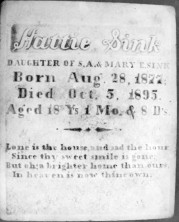 Hattie Sink
DAUGHTER OF S.A.& MARY E. SINK
Born Aug. 28, 1877.
Died Oct. 5, 1895.
Aged 18 Ys 1 Mo. & 8 Ds.
Lone is the house, and sad the hour
Since thy sweet smile is gone,
But oh; a brighter home than ours,
In heaven is now thine own.